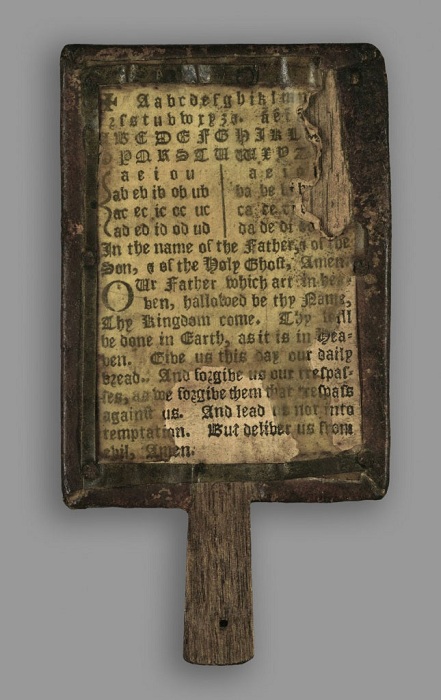 ✠ Aabcdefghiklmn
rſstuvwxyzꝛ. aei
ABCDEFGHIKL
OPQRSTUWXYZ
a e i o u a e i o
ab eb ib ob ub ba be bi
ac ec ic oc uc ca ce ci
ad ed id od ud da de di
In the name of the Father, & of the
Son, & of the Holy Ghoſt, Amen.
OUr Father which art in hea-
ven, hallowed be thy Name,
Thy Kingdom come. Thy will
be done in Earth, as it is in Hea-
ven. Give us this day our daily
bread. And forgive us our treſpaſ-
ſes, as we forgive them that treſpaſs
againſt us. And lead us not into
temptation. But deliver us from
evil, Amen.